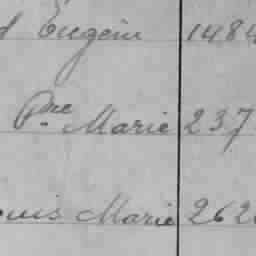 d Eugène 1484
Pre Marie 237
ouis Marie 262